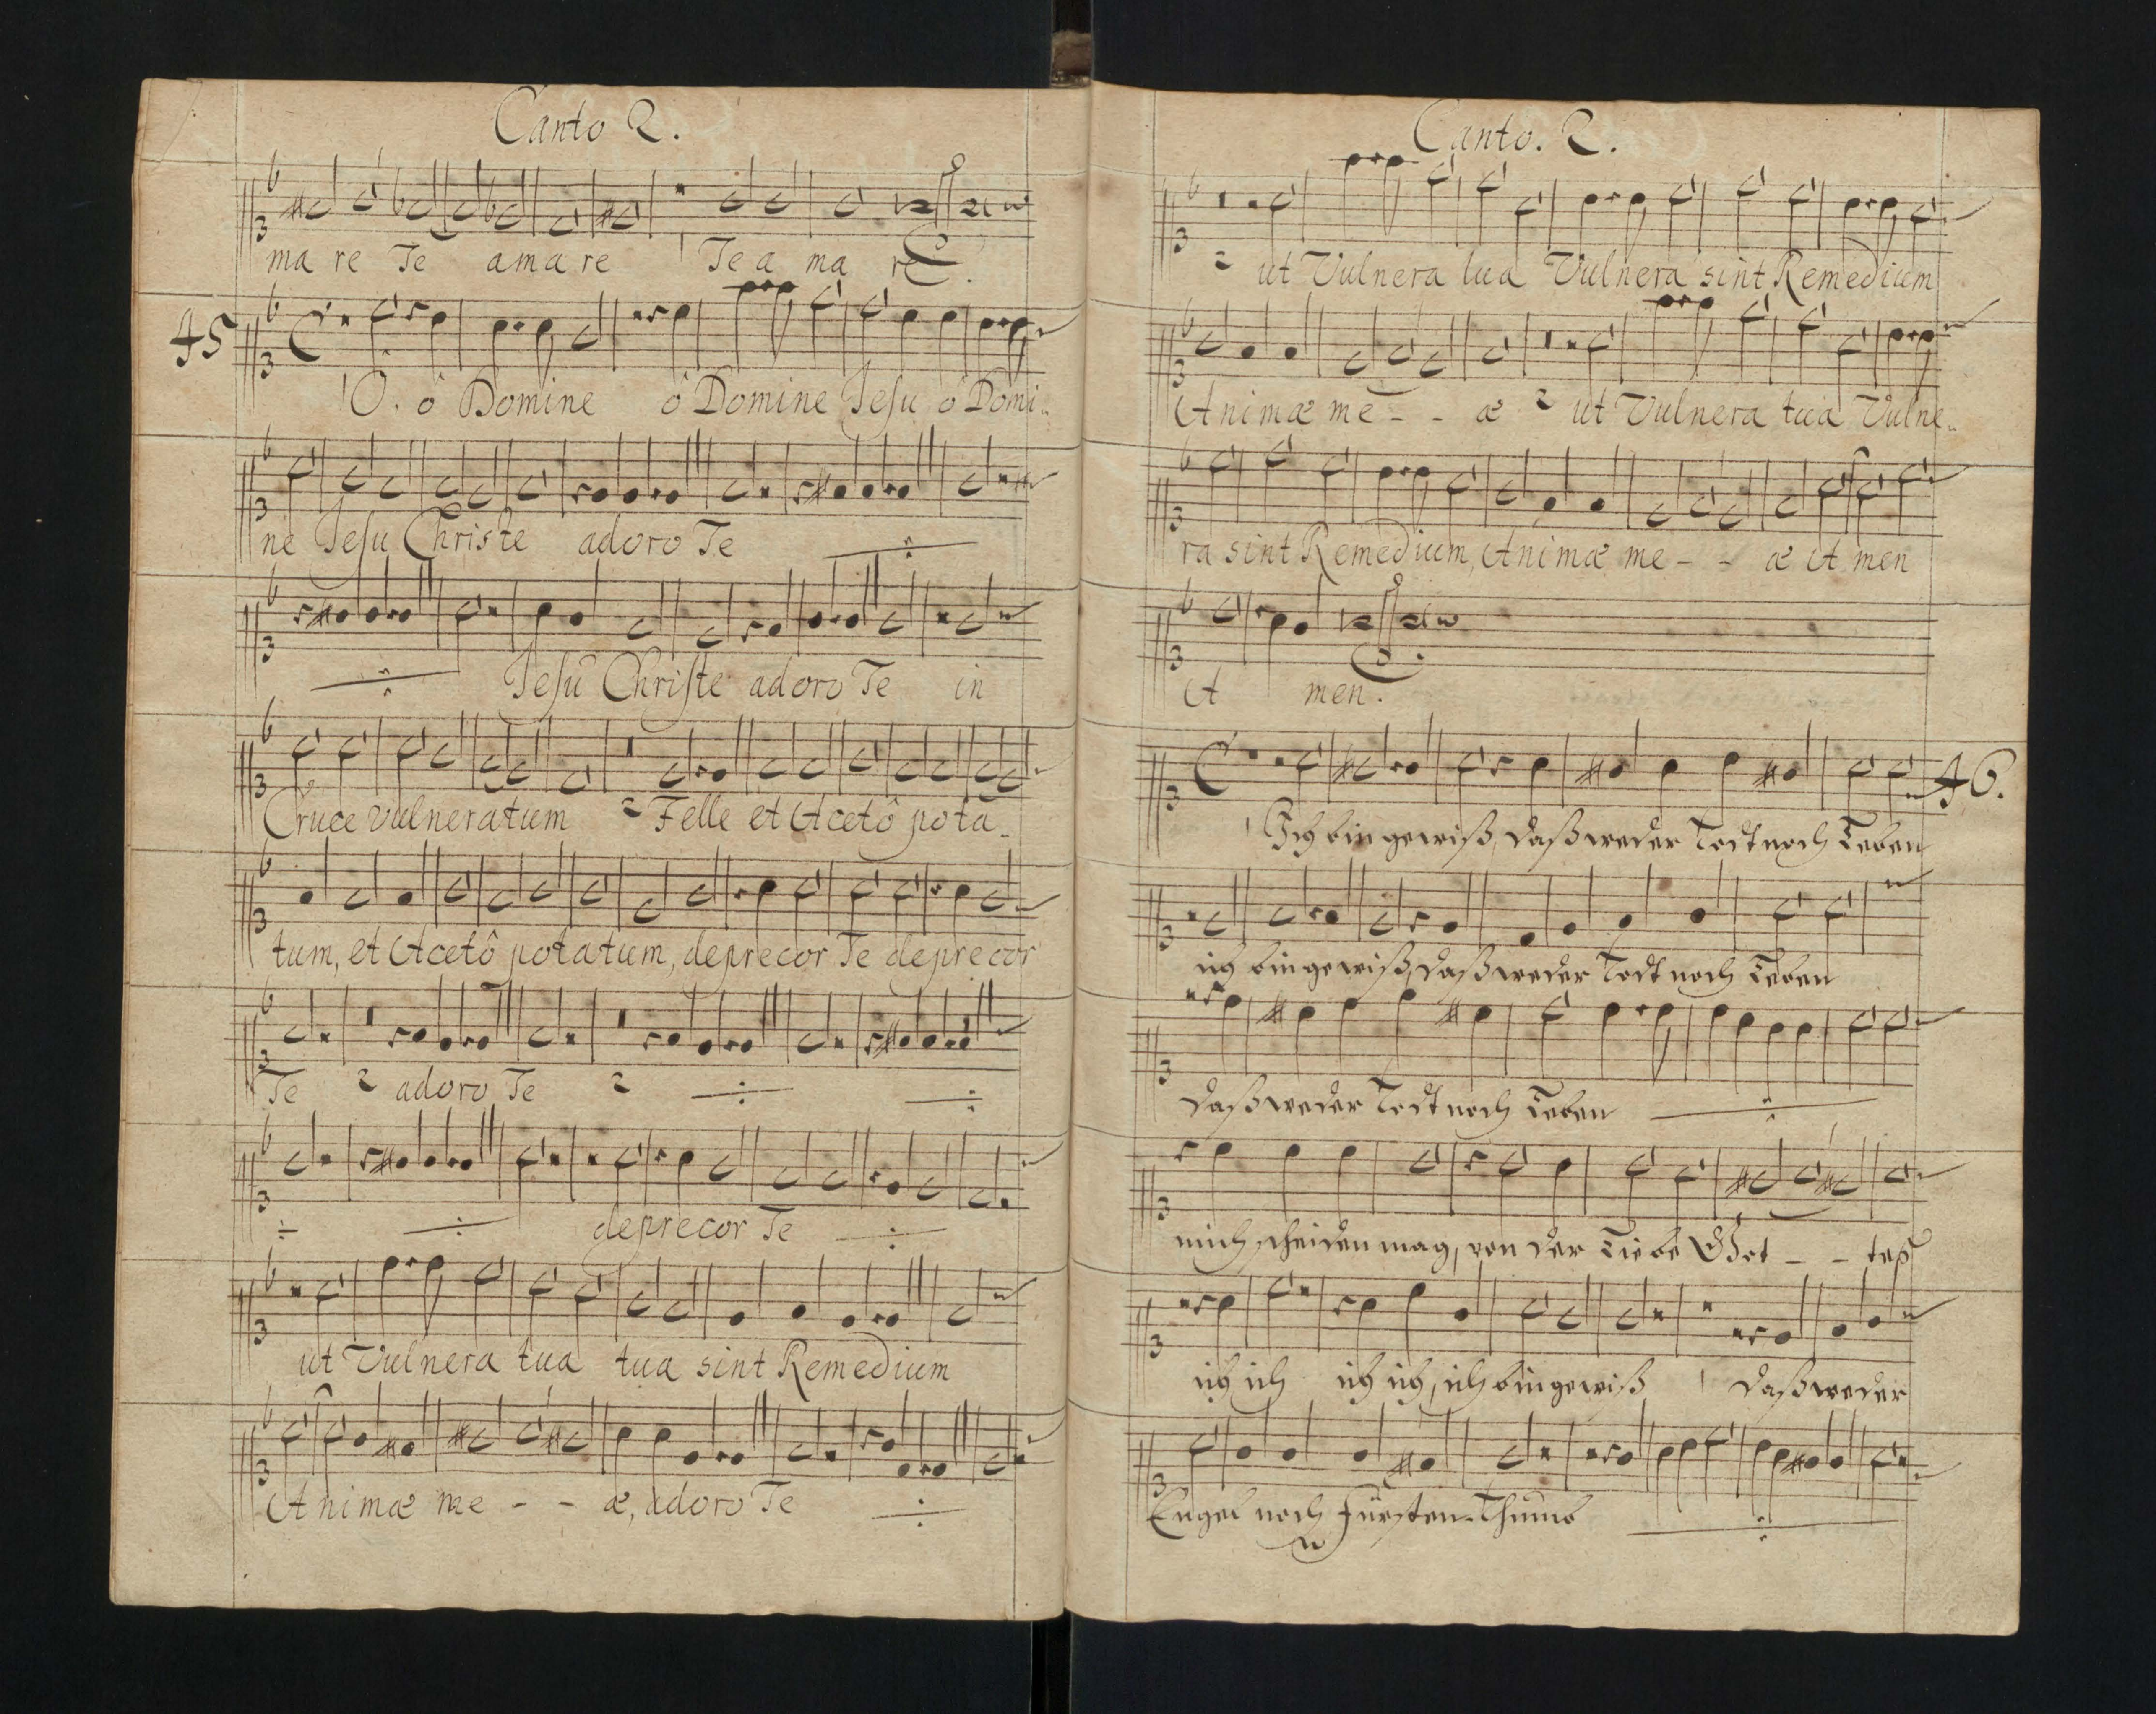 Canto 2.
ma re Te amare Te a ma re
45
O. ô Domine ô Domine Jesu ô Domi-
ne Jesu Christe adoro Te
Jesu Christe adoro Te in
Cruce vulneratum Felle et Acetô pota-
tum, et Acetô potatum, deprecor Te deprecor
Te adoro Te
deprecor Te
ut Vulnera tua tua sint Remedium
Animæ me - - æ, adoro Te
Canto. 2.
ut Vulnera tua Vulnera sint Remedium
Animæ me - - æ ut Vulnera tua Vulne-
ra sint Remedium, Animæ me - - æ A men
A men.
46.
Ich bin gewiß, daß weder Todt noch Leben
ich bin gewiß, daß weder Todt noch Leben
daß weder Todt noch Leben
mich scheiden mag, von der Liebe Got - - teß
ich ich ich ich, ich bin gewiß daß weder
Engel noch Fürsten-Thumb